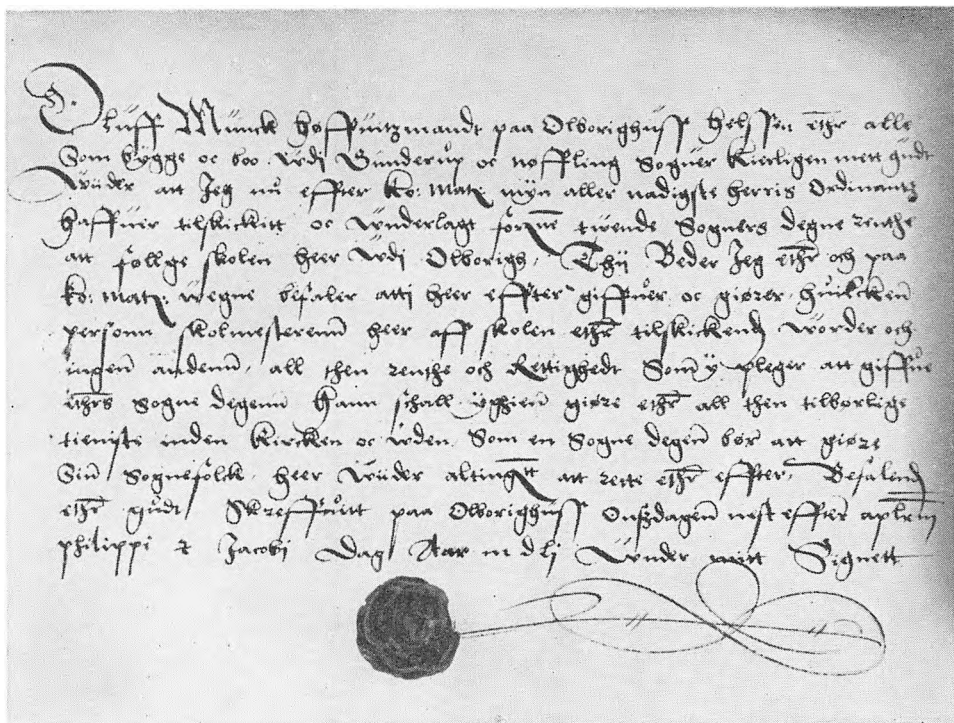 Oluff Munck høffuitzmandt paa Olborighuss Helsser ethr alle
Som bygge oc boo wdi Sunderup oc nøffling Sogner kierligen mett gudt
Wider att Jeg nu effter ko: Matz: myn aller nadigste herris Ordinantz
haffuer tilskickitt oc wnderlagt forne twende Sogners degne renthe
att føllge skolen heer wdi Olborigh, Thii Beder Jeg ethr och paa
ko: matz: wegne befaler atti heer effter giffuer oc giører huilcken
personn skolmesterenn heer aff skolen ethr tilskickend worder och
ingen andenn, all then renthe och Rettighedt Som y pleger att giffue
ethrs Sogne degenn Hann schall ighien giøre ethr all then tilbørlige
tieniste inden kircken oc wden Som en Sogne degen bør att giøre
Sin Sognefolck heer wider altingett att rette ethr effter, Befalend
ethr gudt Skreffuitt paa Olborighuss Onssdagen nest effter aplrm
philippi & Jacobi Dag Aar m d lj Wnder mitt Signett